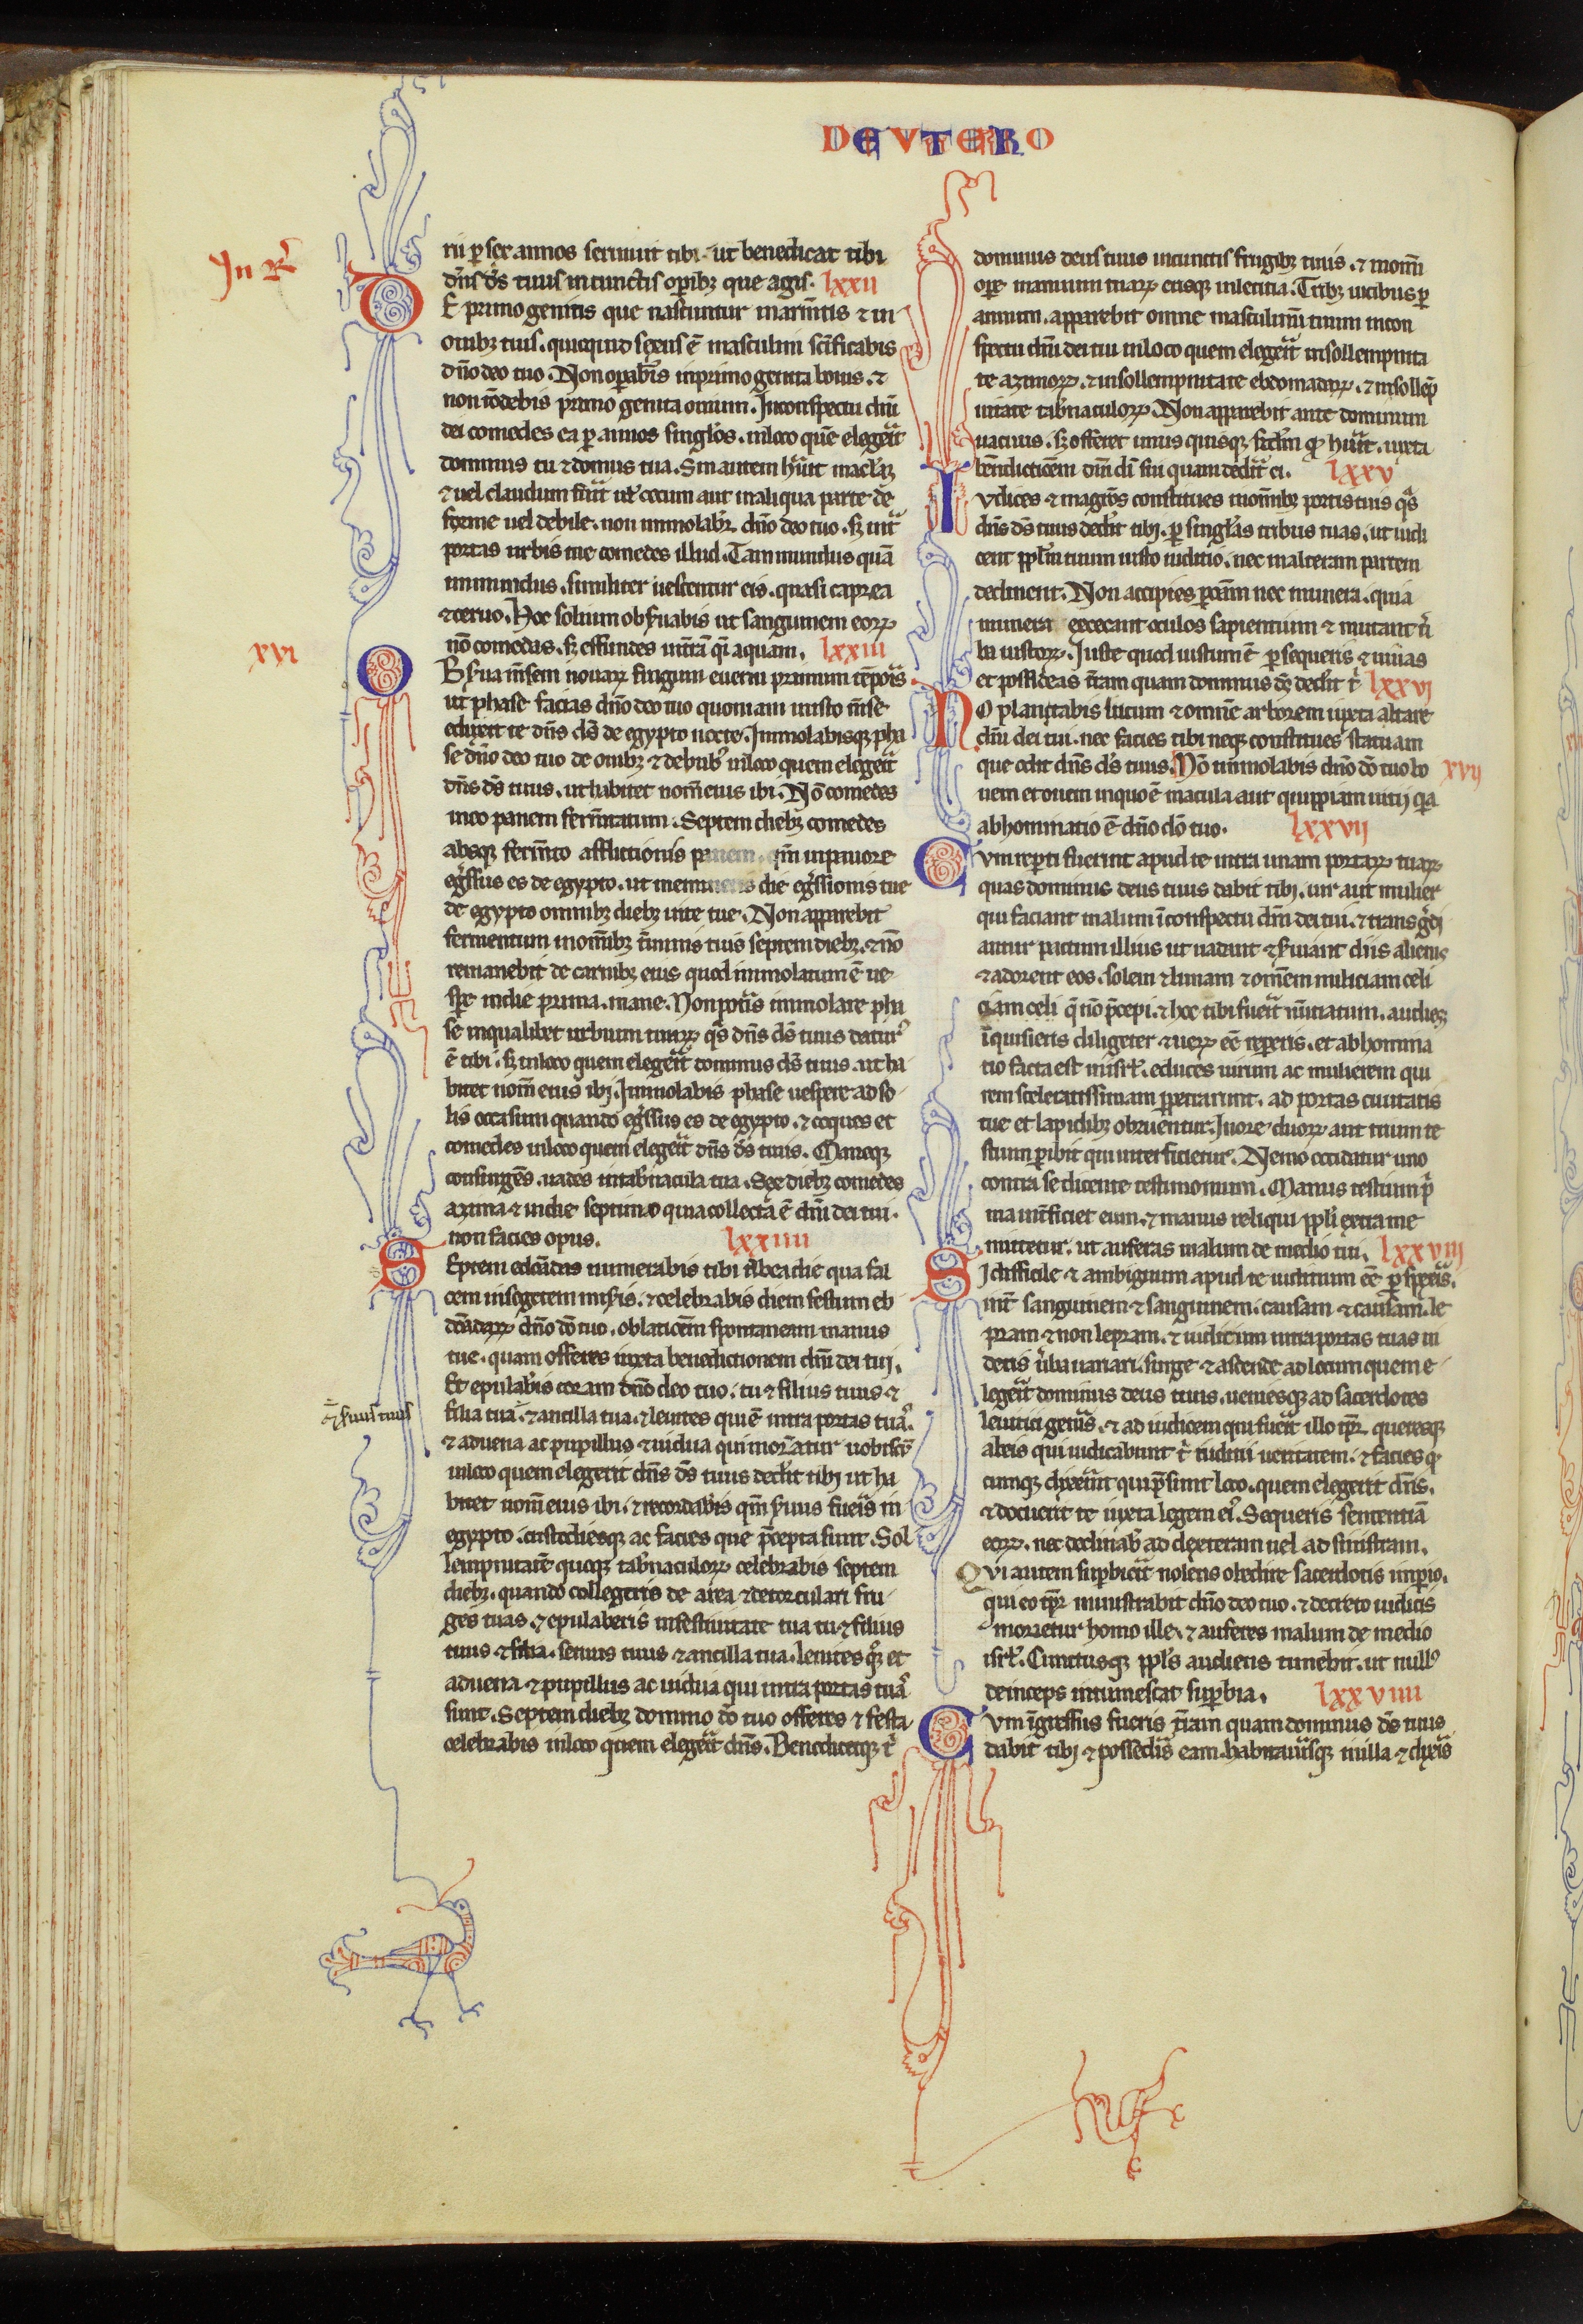 DEVTERO
Jn R᷑
rii ꝑ sex annos seruiuit tibi ut benedicat tibi
dn̄s dc̄s tuus in cunctis oꝑibꝫ que agis. lxxii
DE primogenitis que nascuntur in arm̄tis ⁊ in
ouibꝫ tuis. quicquid sexus ē masculini sc̄ificabis
dn̄o deo tuo. Non oꝑab̄is in primogenita bouis. ⁊
non tōdebis primogenita ouium. In conspectu dn̄i
dei comedes ea ꝑ annos singl̄os. in loco quē elegerit
dominus tu ⁊ domus tua. Sin autem hūit macl̄aꝫ
⁊ uel claudum fuit ul̄ cecum aut in aliqua parte de
forme uel debile. non immolabit᷑ dn̄o deo tuo. sꝫ int᷑
portas urbis tue comedes illud. Tam mundus quā
immundus. similiter uescentur eis. quasi caprea
⁊ ceruo. Hoc solum obẜuabis ut sanguinem eoꝝ
nō comedas. sꝫ effundes in tr̄ā q̄i aquam. lxxiii
xvi
OBẜua m̄sem nouaꝝ frugum ⁊ uerni primum tēporis
ut phase facias dn̄o deo tuo quoniam in isto m̄se
eduxit te dn̄s ds̄ de egypto nocte. Immolabisqꝫ pha
se dn̄o deo tuo de ouibꝫ ⁊ de bubꝰ in loco quem elegerit
dn̄s ds̄ tuus. ut habitet nom̄ eius ibi. Nō comedes
in eo panem ferm̄tatum. Septem diebꝫ comedes
absqꝫ ferm̄to afflictionis panem. qm̄ in pauore
egr̄ssus es de egypto. ut memineris diei egr̄ssionis tue
de egypto omnibꝫ diebꝫ uite tue. Non apparebit
fermentum in om̄ibꝫ t̄minis tuis septem diebꝫ. ⁊ nō
remanebit de carnibꝫ eius quod immolatum ē ue
sꝑe in die prima. mane. Non pot̄is immolare pha
se in qualibet urbium tuaꝝ q̄s dn̄s ds̄ tuus daturꝰ
ē tibi. sꝫ in loco quem elegerit dominus ds̄ tuus. ut ha
bitet nom̄ eius ibi. Immolabis phase uespere ad so
lis occasum quando egr̄ssus es de egypto. ⁊ coques et
comedes in loco quem elegerit dn̄s ds̄ tuus. Maneqꝫ
consurgēs. uades in tab̄nacula tua. Sex diebꝫ comedes
azima ⁊ in die septimo quia collecta ē dn̄i dei tui.
non facies opus. lxxiiii
SEptem edomadas numerabis tibi ab ea die qua fal
cem in segetem miẜis. ⁊ celebrabis diem festum eb
domadaꝝ dn̄o dō tuo. oblationem spontaneam manus
tue. quam offeres iuxta benedictionem dn̄i dei tui.
Et epulab̄is coram dn̄o deo tuo. tu ⁊ filius tuus ⁊
⁊ ẜuus tuus
filia tua. ⁊ ancilla tua. ⁊ leuites qui ē intra portas tuas.
⁊ aduena ac pupillus ⁊ uidua qui morantur uobiscū
in loco quem elegerit dn̄s ds̄ tuus dedit tibi ut ha
bitet nom̄ eius ibi. ⁊ recordab̄is qm̄ ẜuus fueris in
egypto. custodiesqꝫ ac facies que p̄cepta sunt. Sol
lempnitatē quoqꝫ tab̄naculoꝝ celebrabis septem
diebꝫ. quando collegeris de area ⁊ de torculari fru
ges tuas. ⁊ epulaberis in festiuitate tua tu ⁊ filius
tuus ⁊ filia. seruus tuus ⁊ ancilla tua. leuites qꝫ et
aduena ⁊ pupillus ac uidua qui intra portas tuas
sunt. Septem diebꝫ domino dō tuo offeres ⁊ festa
celebrabis in loco quem elegerit dn̄s. Benedicetqꝫ t̄
dominus deus tuus in cunctis frugibꝫ tuis. ⁊ in om̄i
oꝑe manuum tuaꝝ eusqꝫ in leticia. Tribꝫ uicibus ꝑ
annum. apparebit omne masculinū tuum in con
spectu dn̄i dei tui in loco quem elegerit in sollempnita
te azimoꝝ. ⁊ in sollempnitate ebdomadaꝝ. ⁊ in sollēp
nitate tab̄naculoꝝ. Non apparebit ante dominum
uacuus. sꝫ offeret unus quisqꝫ scd̄m qd̄ hūit. iuxta
bn̄dictōem dn̄i di sui quam dederit ei. lxxv
IVdices ⁊ magr̄os constitues in om̄ibꝫ portis tuis q̄s
dn̄s ds̄ tuus dedit tibi. ꝑ singl̄as tribus tuas. ut iudi
cent ppl̄m tuum iusto iuditio. nec in alteram partem
declinent. Non accipies ꝑsonam nec munera. quia
munera excecant oculos sapientium ⁊ mutant ū
ba iustoꝝ. Iuste quod iustum ē ꝑsequeris ⁊ uiuas
et possideas tr̄am quam dominus ds̄ dedit t̄ lxxvi
NO plantabis lucum ⁊ omnē arborem iuxta altare
dn̄i dei tui. nec facies tibi neqꝫ constitues statuam
que odit dn̄s ds̄ tuus. Nō immolabis dn̄o dō tuo bo xvii
uem et ouem in quo ē macula aut quippiam uitij q̄a
abhominatio ē dn̄o dō tuo. lxxvii
CVm reperti fuerint apud te intra unam portaꝝ tuaꝝ
quas dominus deus tuus dabit tibi. uir aut mulier
qui faciant malum ī conspectu dn̄i dei tui. ⁊ transgr̄di
antur pactum illius ut uadant ⁊ ẜuiant diis alienis
⁊ adorent eos. solem ⁊ lunam ⁊ om̄em miliciam celi
ciam celi q̄ nō p̄cepi. ⁊ hoc tibi fuerit nūtiatum. audiesqꝫ
īquisieris diligēter ⁊ ueꝝ eē repperis. et abhomina
tio facta est in isrl̄. educes uirum ac mulierem qui
rem sceleratissimam ppetrarunt. ad portas ciuitatis
tue et lapidibꝫ obruentur. In ore duoꝝ aut trium te
stium ꝑibit qui interficietur. Nemo occidatur uno
contra se dicente testimonium. Manus testium p̄
ma int̄ficiet eum. ⁊ manus reliqui ppl̄i extra me
mittetur. ut auferas malum de medio tui. lxxviii
SI difficile ⁊ ambiguum apud te iuditium eē ꝑspexeris.
int̄ sanguinem ⁊ sanguinem. causam ⁊ causam. le
pram ⁊ non lepram. ⁊ iudicium intra portas tuas ui
deris ūba uariari. surge ⁊ ascende ad locum quem e
legerit dominus deus tuus. ueniesqꝫ ad sacerdotes
leuitici gen̄is. ⁊ ad iudicem qui fuerit illo tp̄r. queresqꝫ
ab eis qui iudicabunt t̄ iuditii ueritatem. ⁊ facies qd̄
cumqꝫ dixerint qui p̄sunt loco. quem elegerit dn̄s.
⁊ docuerit te iuxta legem eiꝰ. Sequeris sententiā
eoꝝ. nec declinabꝰ ad dexteram uel ad sinistram.
Qui autem suꝑbierit nolens obedire sacerdotis imꝑio.
qui eo tp̄r ministrabit dn̄o deo tuo. ⁊ decreto iudicis
morietur homo ille. ⁊ auferes malum de medio
isrl̄. Cunctusqꝫ ppl̄s audiens timebit. ut nullꝰ
deinceps intumescat suꝑbia. lxxviiii
CVm īgressus fueris tr̄am quam dominus ds̄ tuus
dabit tibi ⁊ possedis eam. habitauerisqꝫ in illa ⁊ dixeris